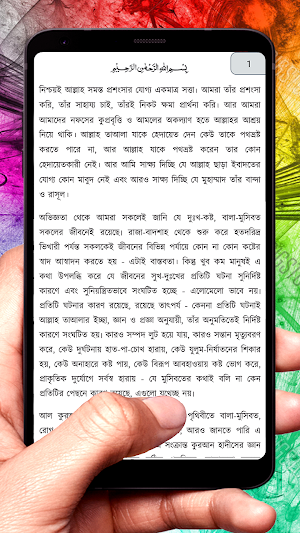 بِسْمِ اللهِ الرَّحْمٰنِ الرَّحِيْمِ
1
নিশ্চয়ই আল্লাহ সমস্ত প্রশংসার যোগ্য একমাত্র সত্তা। আমরা তাঁর প্রশংসা
করি, তাঁর সাহায্য চাই, তাঁরই নিকট ক্ষমা প্রার্থনা করি। আর আমরা
আমাদের নফসের কুপ্রবৃত্তি ও আমলের অকল্যাণ হতে আল্লাহর আশ্রয়
নিয়ে থাকি। আল্লাহ তাআলা যাকে হেদায়েত দেন কেউ তাকে পথভ্রষ্ট
করতে পারে না, আর আল্লাহ যাকে পথভ্রষ্ট করেন তার কোন
হেদায়েতকারী নেই। আর আমি সাক্ষ্য দিচ্ছি যে আল্লাহ ছাড়া ইবাদতের
যোগ্য কোন মাবুদ নেই এবং আরও সাক্ষ্য দিচ্ছি যে মুহাম্মাদ তাঁর বান্দা
ও রাসূল।
অভিজ্ঞতা থেকে আমরা সকলেই জানি যে দুঃখ-কষ্ট, বালা-মুসিবত
সকলের জীবনেই রয়েছে। রাজা-বাদশাহ থেকে শুরু করে হতদরিদ্র
ভিখারী পর্যন্ত সকলকেই জীবনের বিভিন্ন পর্যায়ে কোন না কোন কষ্টের
স্বাদ আস্বাদন করতে হয় - এটাই বাস্তবতা। কিন্তু খুব কম মানুষই এ
কথা উপলব্ধি করে যে জীবনের সুখ-দুঃখের প্রতিটি ঘটনা সুনির্দিষ্ট
কারণে এবং সুনিয়ন্ত্রিতভাবে সংঘটিত হচ্ছে - এলোমেলো ভাবে নয়।
প্রতিটি ঘটনার কারণ রয়েছে, রয়েছে তাৎপর্য - কেননা প্রতিটি ঘটনাই
আল্লাহ তাআলার ইচ্ছা, জ্ঞান ও প্রজ্ঞা অনুযায়ী, তাঁর অনুমতিতেই নির্দিষ্ট
কারণে সংঘটিত হয়। কারও সম্পদ লুট হয়ে যায়, কারও সন্তান মৃত্যুবরণ
করে, কেউ দুর্ঘটনায় হাত-পা-চোখ হারায়, কেউ যুলুম-নির্যাতনের শিকার
হয়, কেউ অনাহারে কষ্ট পায়, কেউ বিরূপ আবহাওয়ায় কষ্ট ভোগ করে,
প্রাকৃতিক দুর্যোগে সর্বস্ব হারায় - যে মুসিবতের কথাই বলি না কেন
প্রতিটির পেছনে কারণ রয়েছে, এগুলো যথেচ্ছ নয়।
আল কুর পৃথিবীতে বালা-মুসিবত,
রোগ আরও জানতে পারি এ
সংক্রান্ত কুরআন হাদীসের জ্ঞান